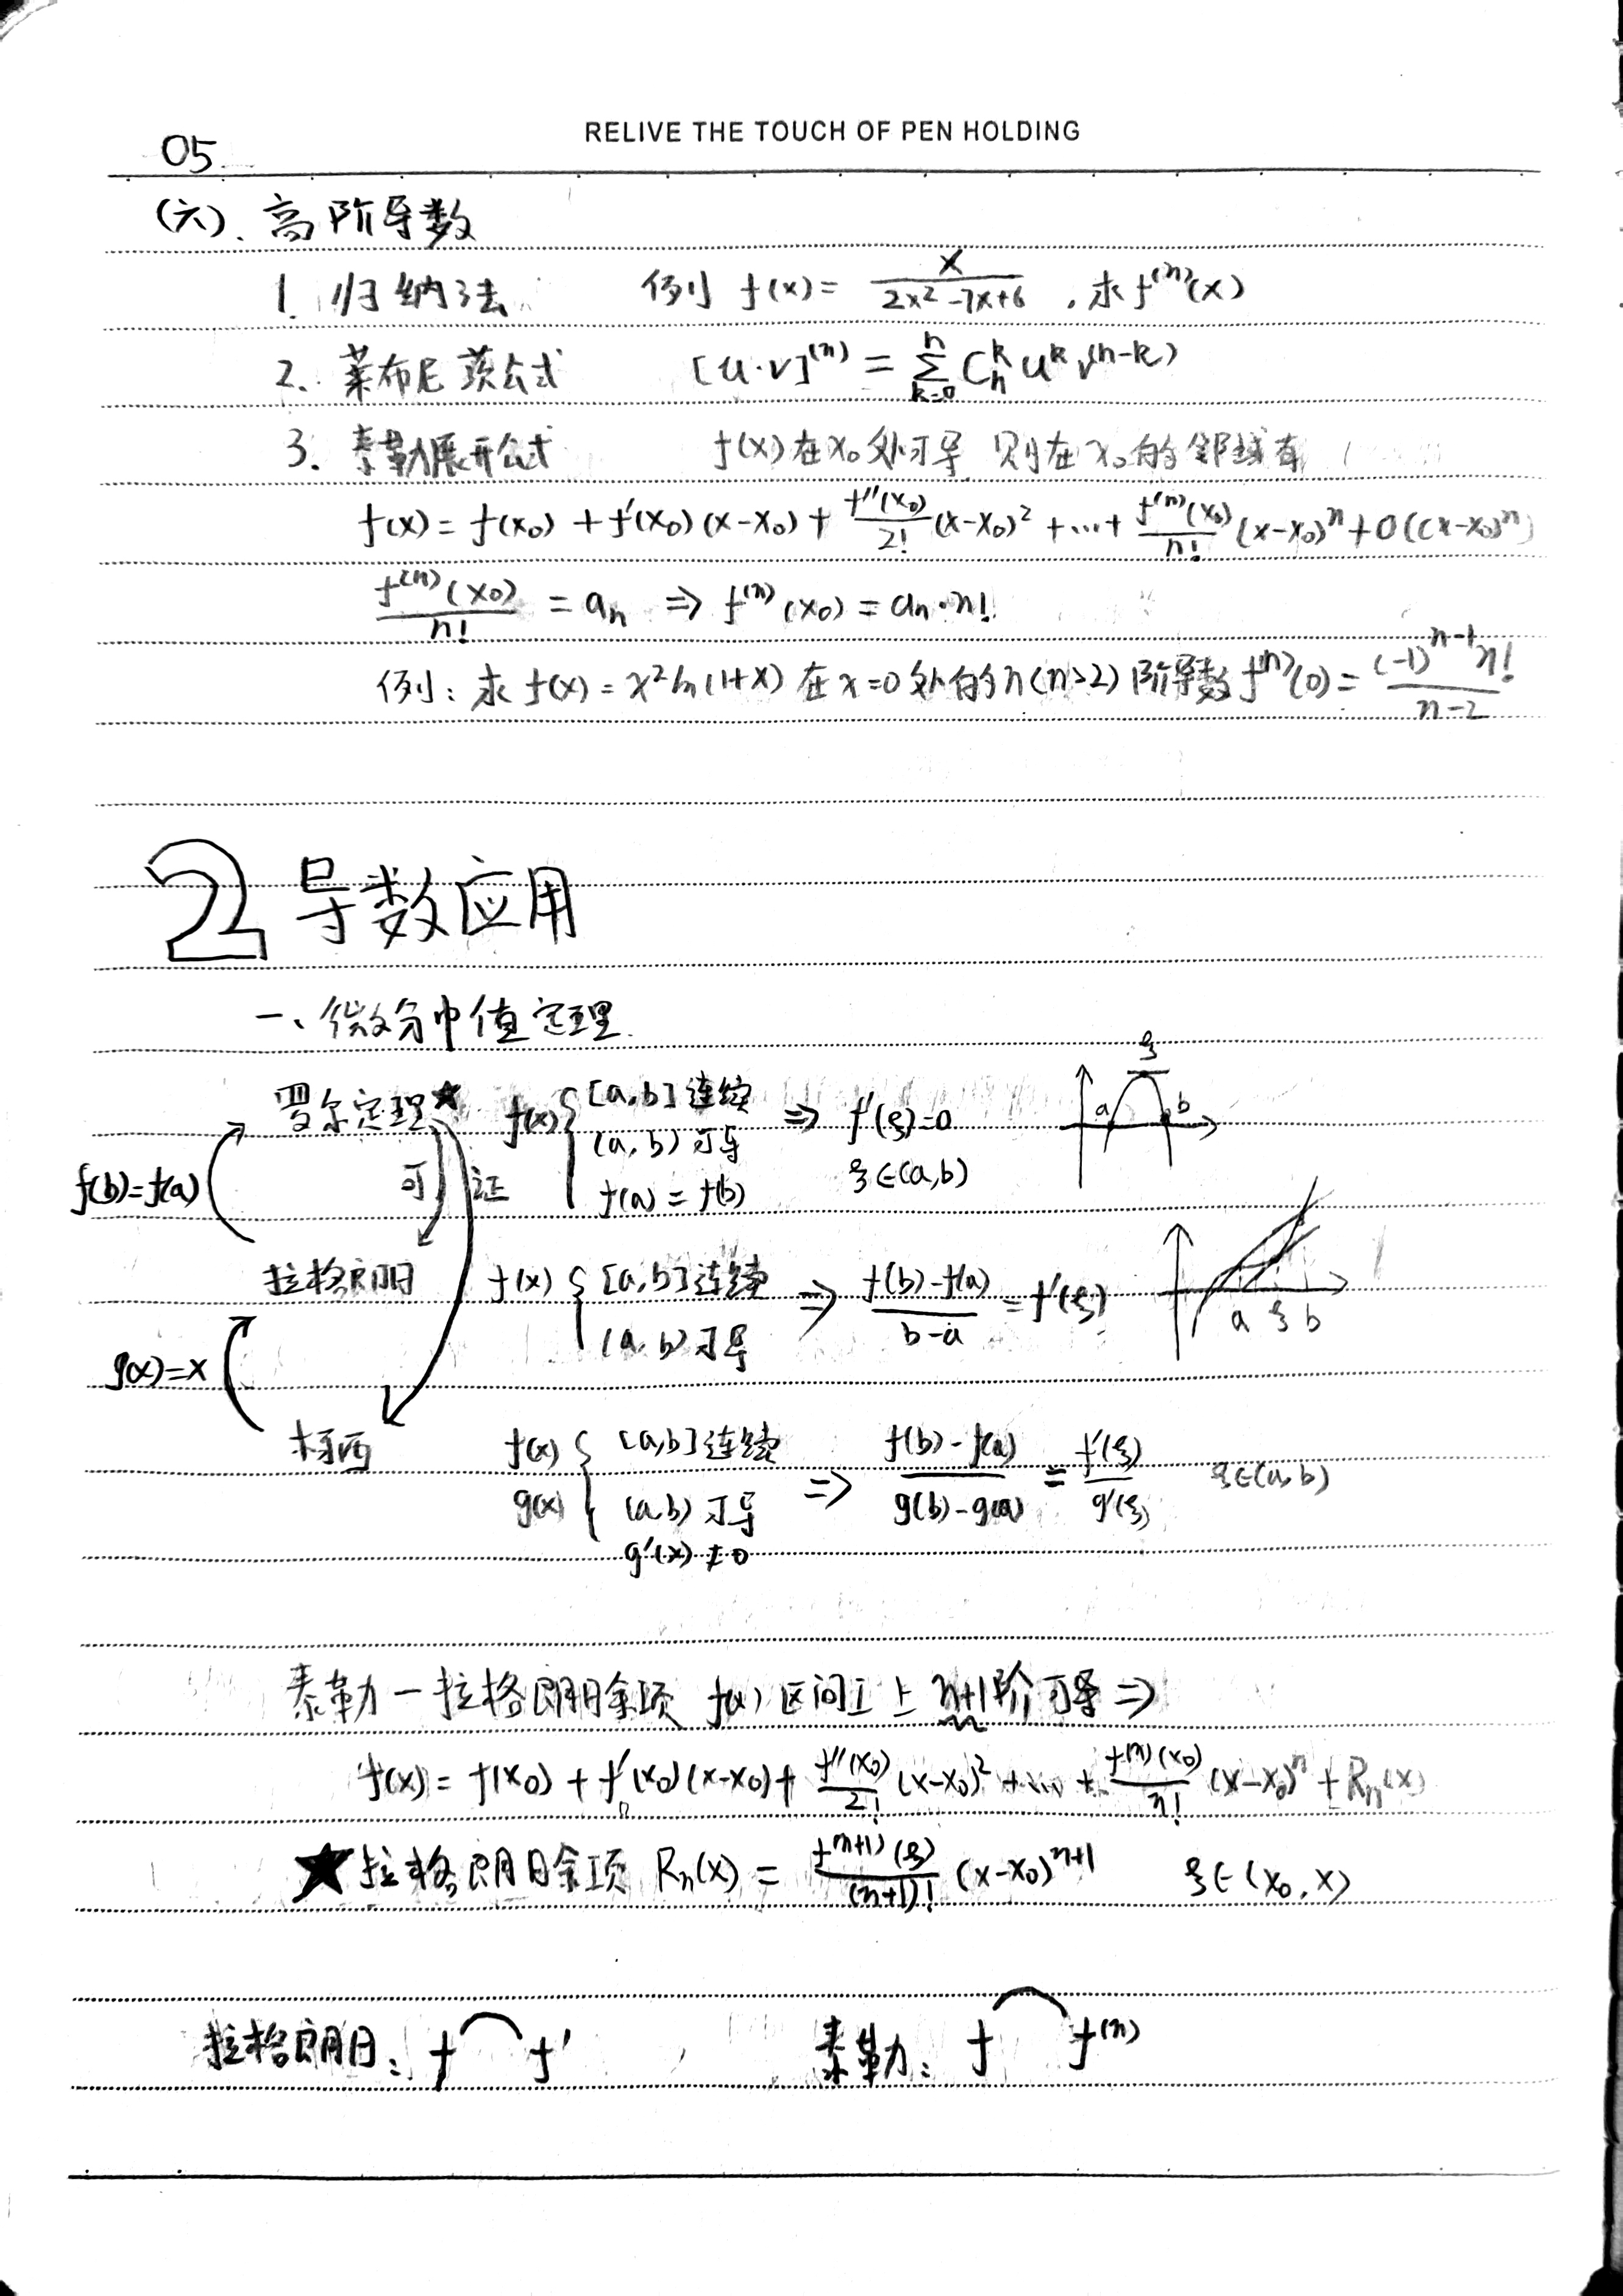 RELIVE THE TOUCH OF PEN HOLDING
05
(六). 高阶导数
1. 归纳法 例 f(x) = x/(2x²-7x+6) , 求f⁽ⁿ⁾(x)
2. 莱布尼茨公式 [u·v]⁽ⁿ⁾ = Σ_{k=0}^{n} C_n^k u^k v^(n-k)
3. 泰勒展开公式 f(x)在x₀处可导 则在x₀的邻域有
f(x) = f(x₀) + f'(x₀)(x-x₀) + f''(x₀)/2! (x-x₀)² + … + f⁽ⁿ⁾(x₀)/n! (x-x₀)ⁿ + o((x-x₀)ⁿ)
f⁽ⁿ⁾(x₀)/n! = aₙ ⇒ f⁽ⁿ⁾(x₀) = aₙ·n!
例: 求 f(x) = x²ln(1+x) 在x=0处的n(n>2)阶导数 f⁽ⁿ⁾(0) = (-1)ⁿ⁻¹n!/(n-2)
2 导数应用
一、微分中值定理
罗尔定理★ f(x) { [a,b]连续 ⇒ f'(ξ)=0
(a,b)可导
f(a) = f(b) ξ∈(a,b)
ξ
a b
f(b)=f(a)
可 证
拉格朗日 f(x) { [a,b]连续 ⇒ (f(b)-f(a))/(b-a) = f'(ξ)
(a,b)可导
a ξ b
g(x)=x
柯西 f(x) g(x) { [a,b]连续 ⇒ (f(b)-f(a))/(g(b)-g(a)) = f'(ξ)/g'(ξ) ξ∈(a,b)
(a,b)可导
g'(x)≠0
泰勒-拉格朗日余项 f(x)区间I上 n+1阶可导 ⇒
f(x) = f(x₀) + f'(x₀)(x-x₀) + f''(x₀)/2! (x-x₀)² + … + f⁽ⁿ⁾(x₀)/n! (x-x₀)ⁿ + Rₙ(x)
★拉格朗日余项 Rₙ(x) = f⁽ⁿ⁺¹⁾(ξ)/(n+1)! (x-x₀)ⁿ⁺¹ ξ∈(x₀,x)
拉格朗日: f⌒f' 泰勒: f⌒f⁽ⁿ⁾